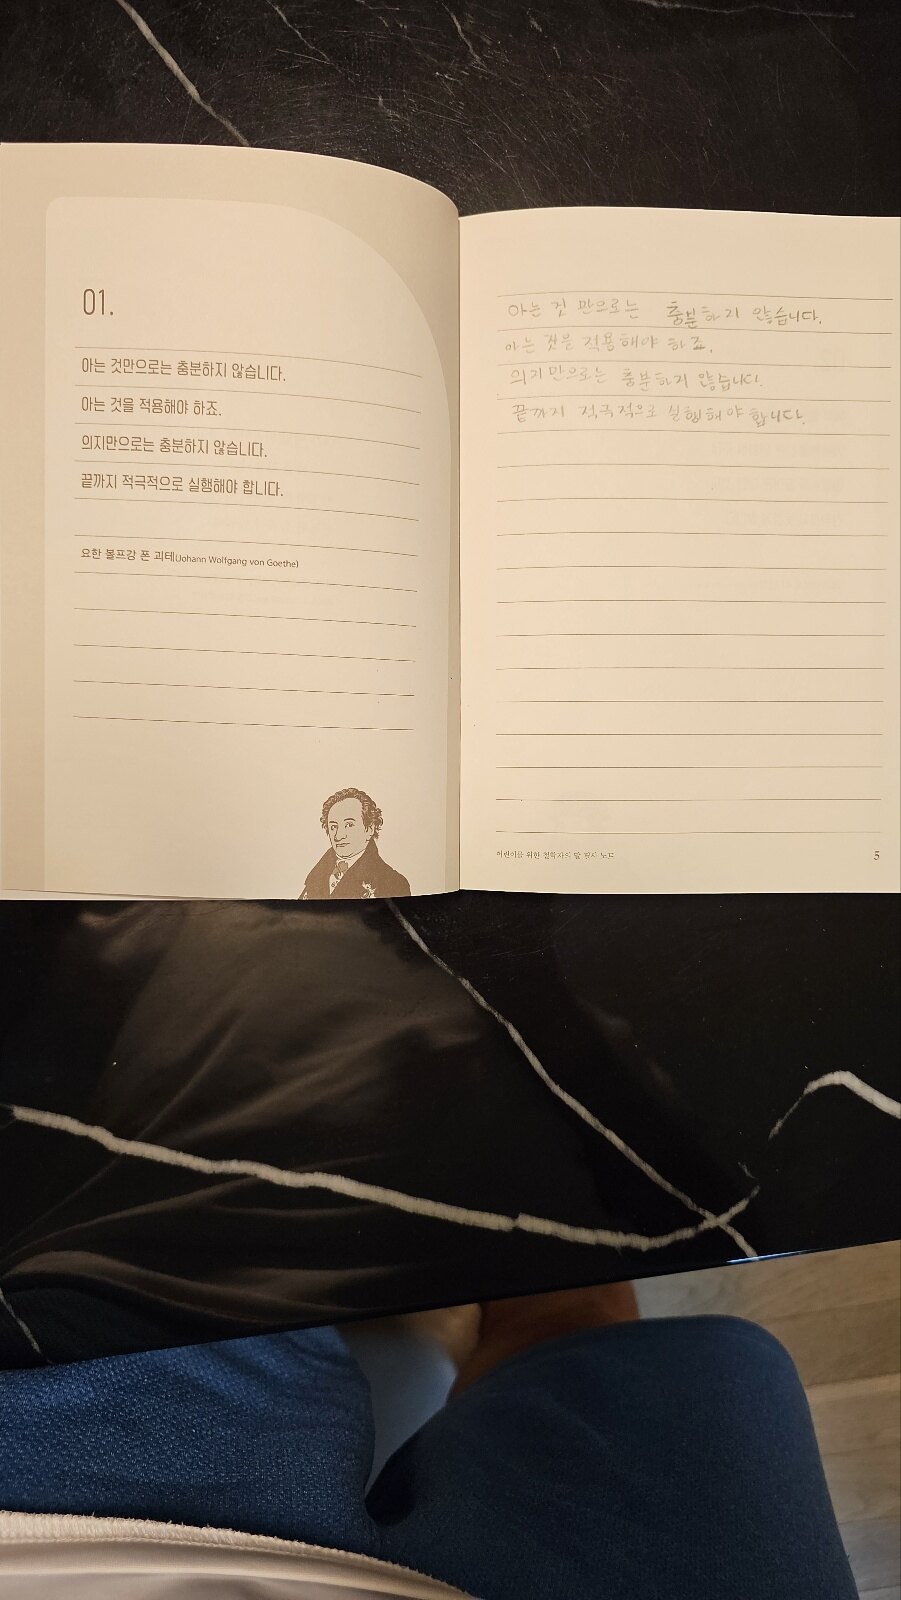 01.
아는 것만으로는 충분하지 않습니다.
아는 것을 적용해야 하죠.
의지만으로는 충분하지 않습니다.
끝까지 적극적으로 실행해야 합니다.
요한 볼프강 폰 괴테(Johann Wolfgang von Goethe)
아는 것 만으로는 충분하지 않습니다.
아는 것을 적용해야 하죠.
의지만으로는 충분하지 않습니다.
끝까지 적극적으로 실행해야 합니다.
어린이를 위한 철학자의 말 필사 노트
5